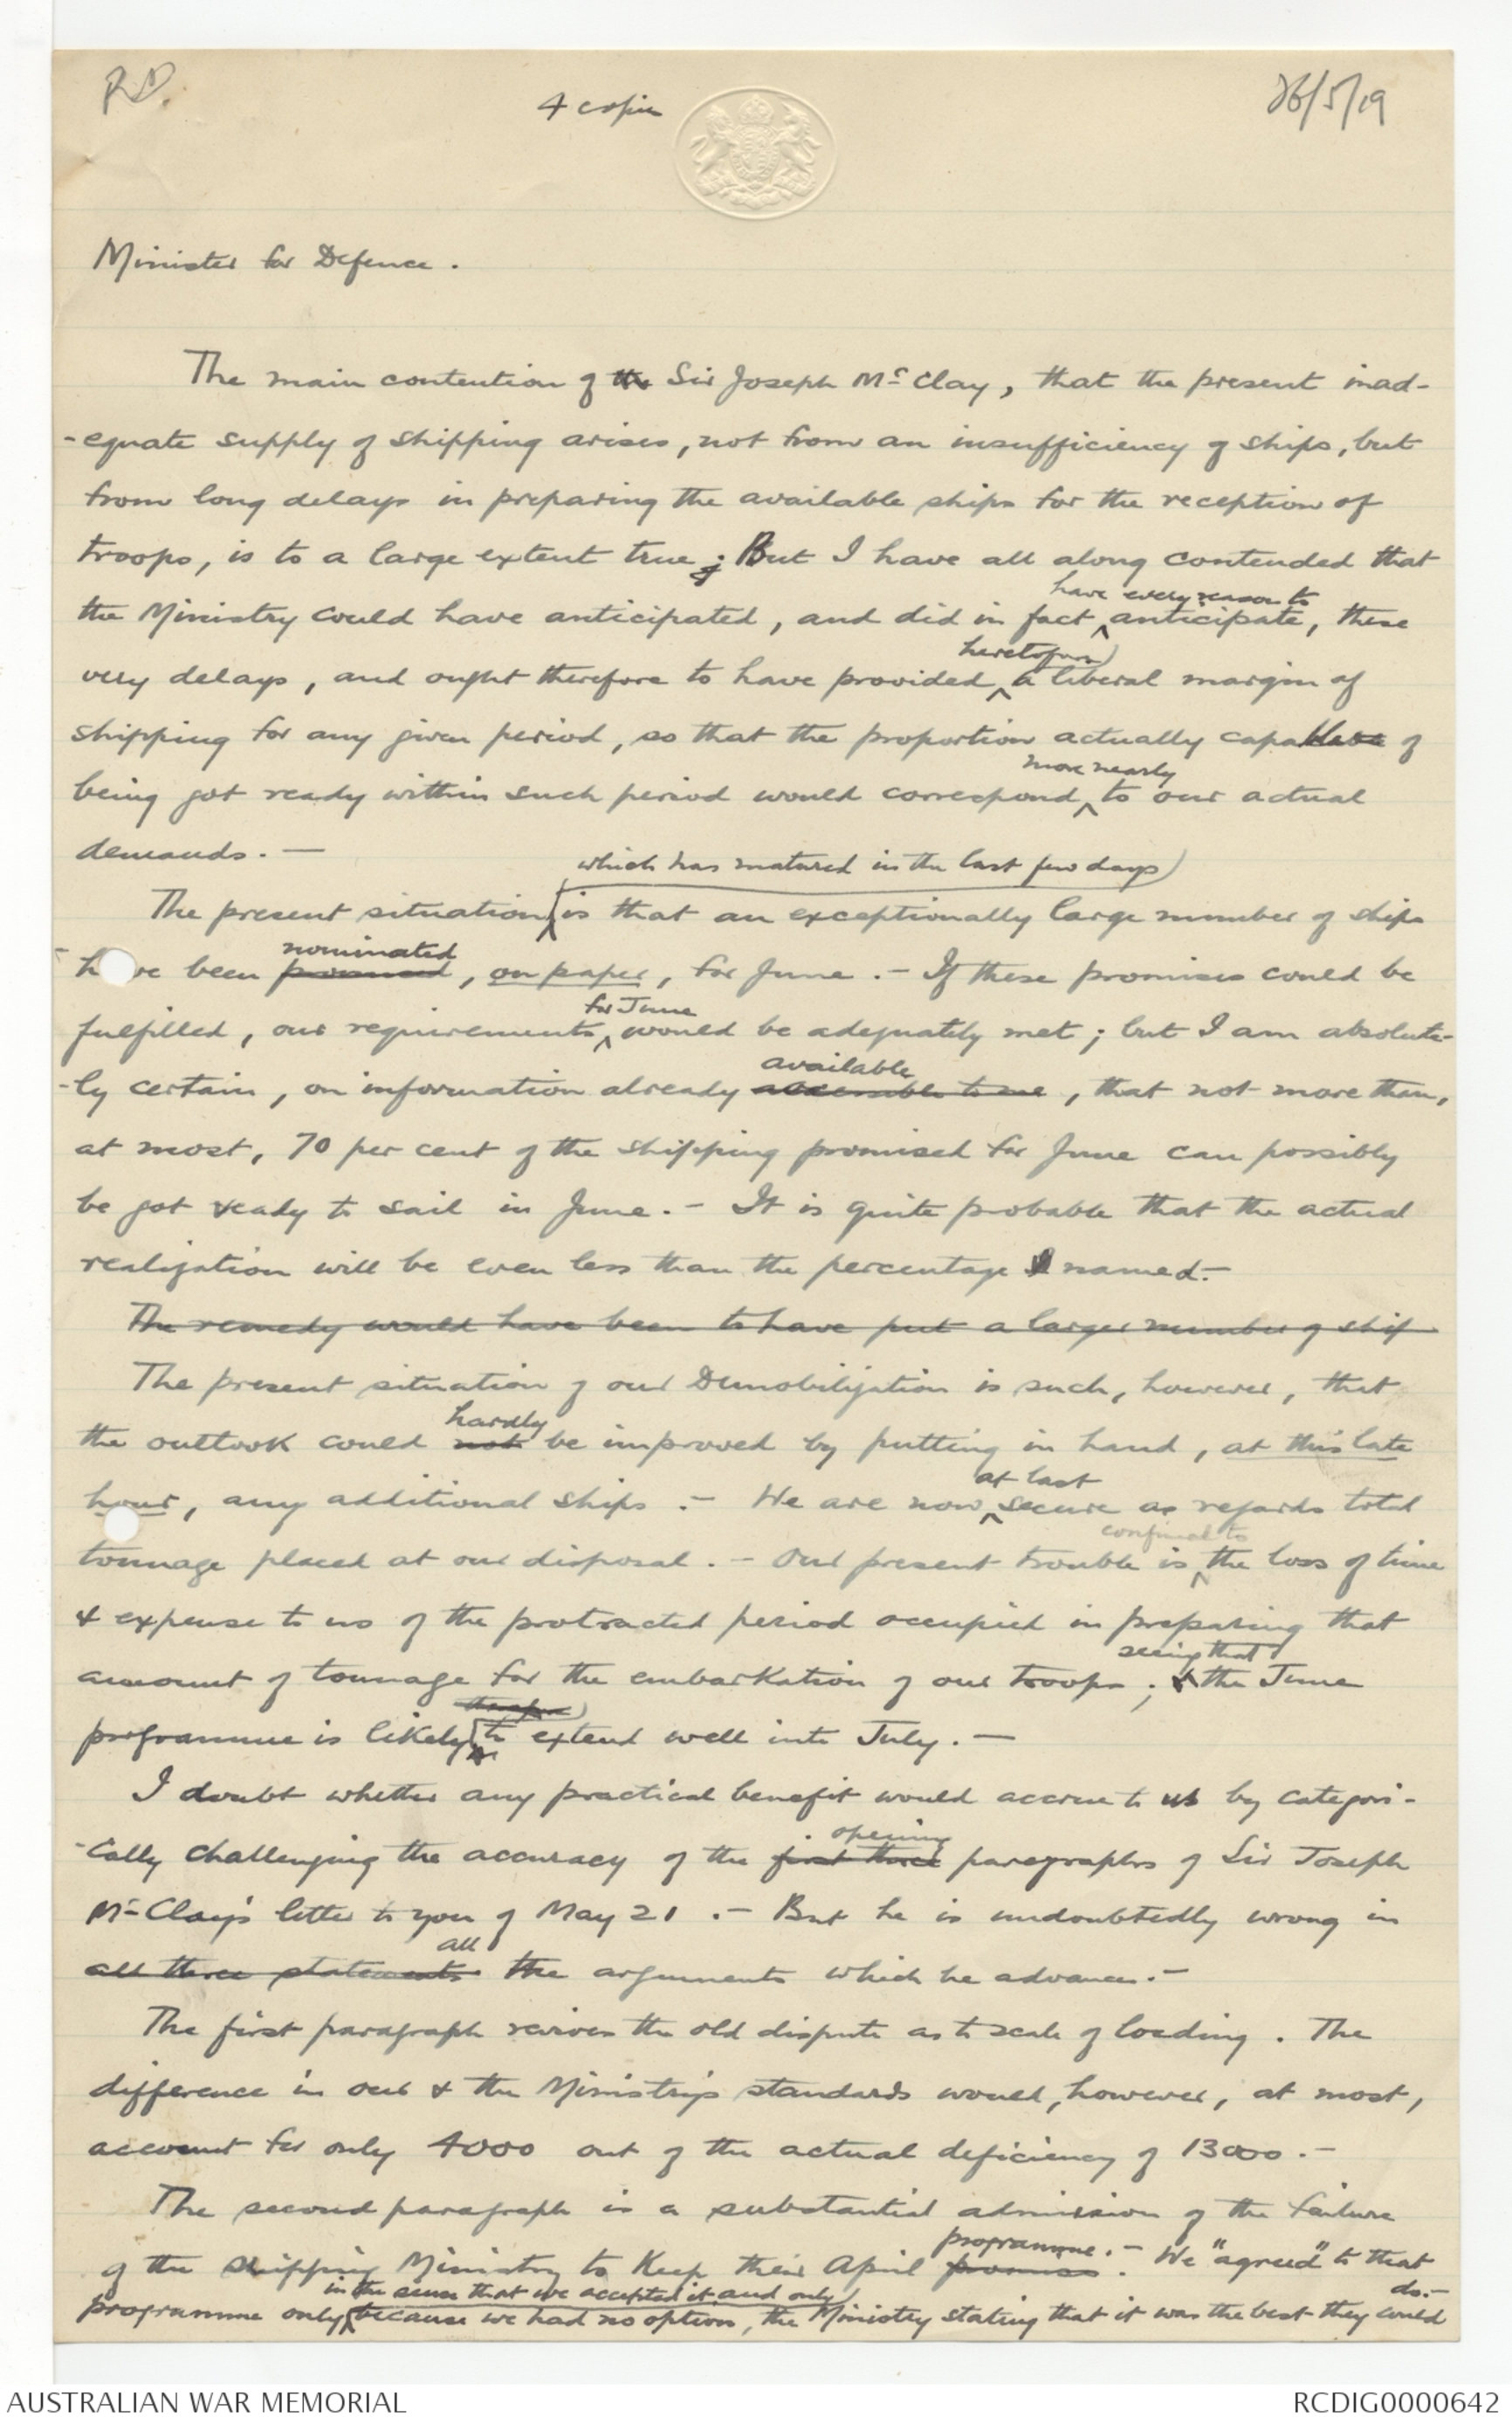 RD.
4 copies
26/5/19
Minister for Defence.
The main contention of the Sir Joseph McClay, that the present inad-
-equate supply of shipping arises, not from an insufficiency of ships, but
from long delays in preparing the available ships for the reception of
troops, is to a large extent true; But I have all along contended that
have every reason to
the Ministry could have anticipated, and did in fact ^ anticipate, these
heretofore
very delays, and ought therefore to have provided ^ a liberal margin of
shipping for any given period, so that the proportion actually capable of
more nearly
being got ready within such period would correspond ^ to our actual
demands. —
which has matured in the last few days
The present situation is that an exceptionally large number of ships
nominated
have been promised, on paper, for June. - If these promises could be
for June
fulfilled, our requirements ^ would be adequately met; but I am absolute-
available
-ly certain, on information already accessible to me, that not more than,
at most, 70 per cent of the shipping promised for June can possibly
be got ready to sail in June. - It is quite probable that the actual
realization will be even less than the percentage I named. -
The remedy would have been to have put a larger number of ship
The present situation of our Demobilization is such, however, that
hardly
the outlook could not be improved by putting in hand, at this late
at last
hour, any additional ships. - We are now ^ secure as regards total
confined to
tonnage placed at our disposal. - Our present trouble is ^ the loss of time
& expense to us of the protracted period occupied in preparing that
seeing that
amount of tonnage for the embarkation of our troops; the June
programme is likely to extend well into July. —
I doubt whether any practical benefit would accrue to us by categori-
opening
-cally challenging the accuracy of the first three paragraphs of Sir Joseph
McClay's letter to you of May 21. - But he is undoubtedly wrong in
all
all three statements the arguments which he advances. -
The first paragraph revives the old dispute as to scale of loading. The
difference in our & the Ministry's standards would, however, at most,
account for only 4000 out of the actual deficiency of 13000. -
The second paragraph is a substantial admission of the failure
programme. -
of the Shipping Ministry to keep their April promises. We "agreed" to that
in the sense that we accepted it and only
do. -
programme only because we had no option, the Ministry stating that it was the best they could
AUSTRALIAN WAR MEMORIAL
RCDIG0000642